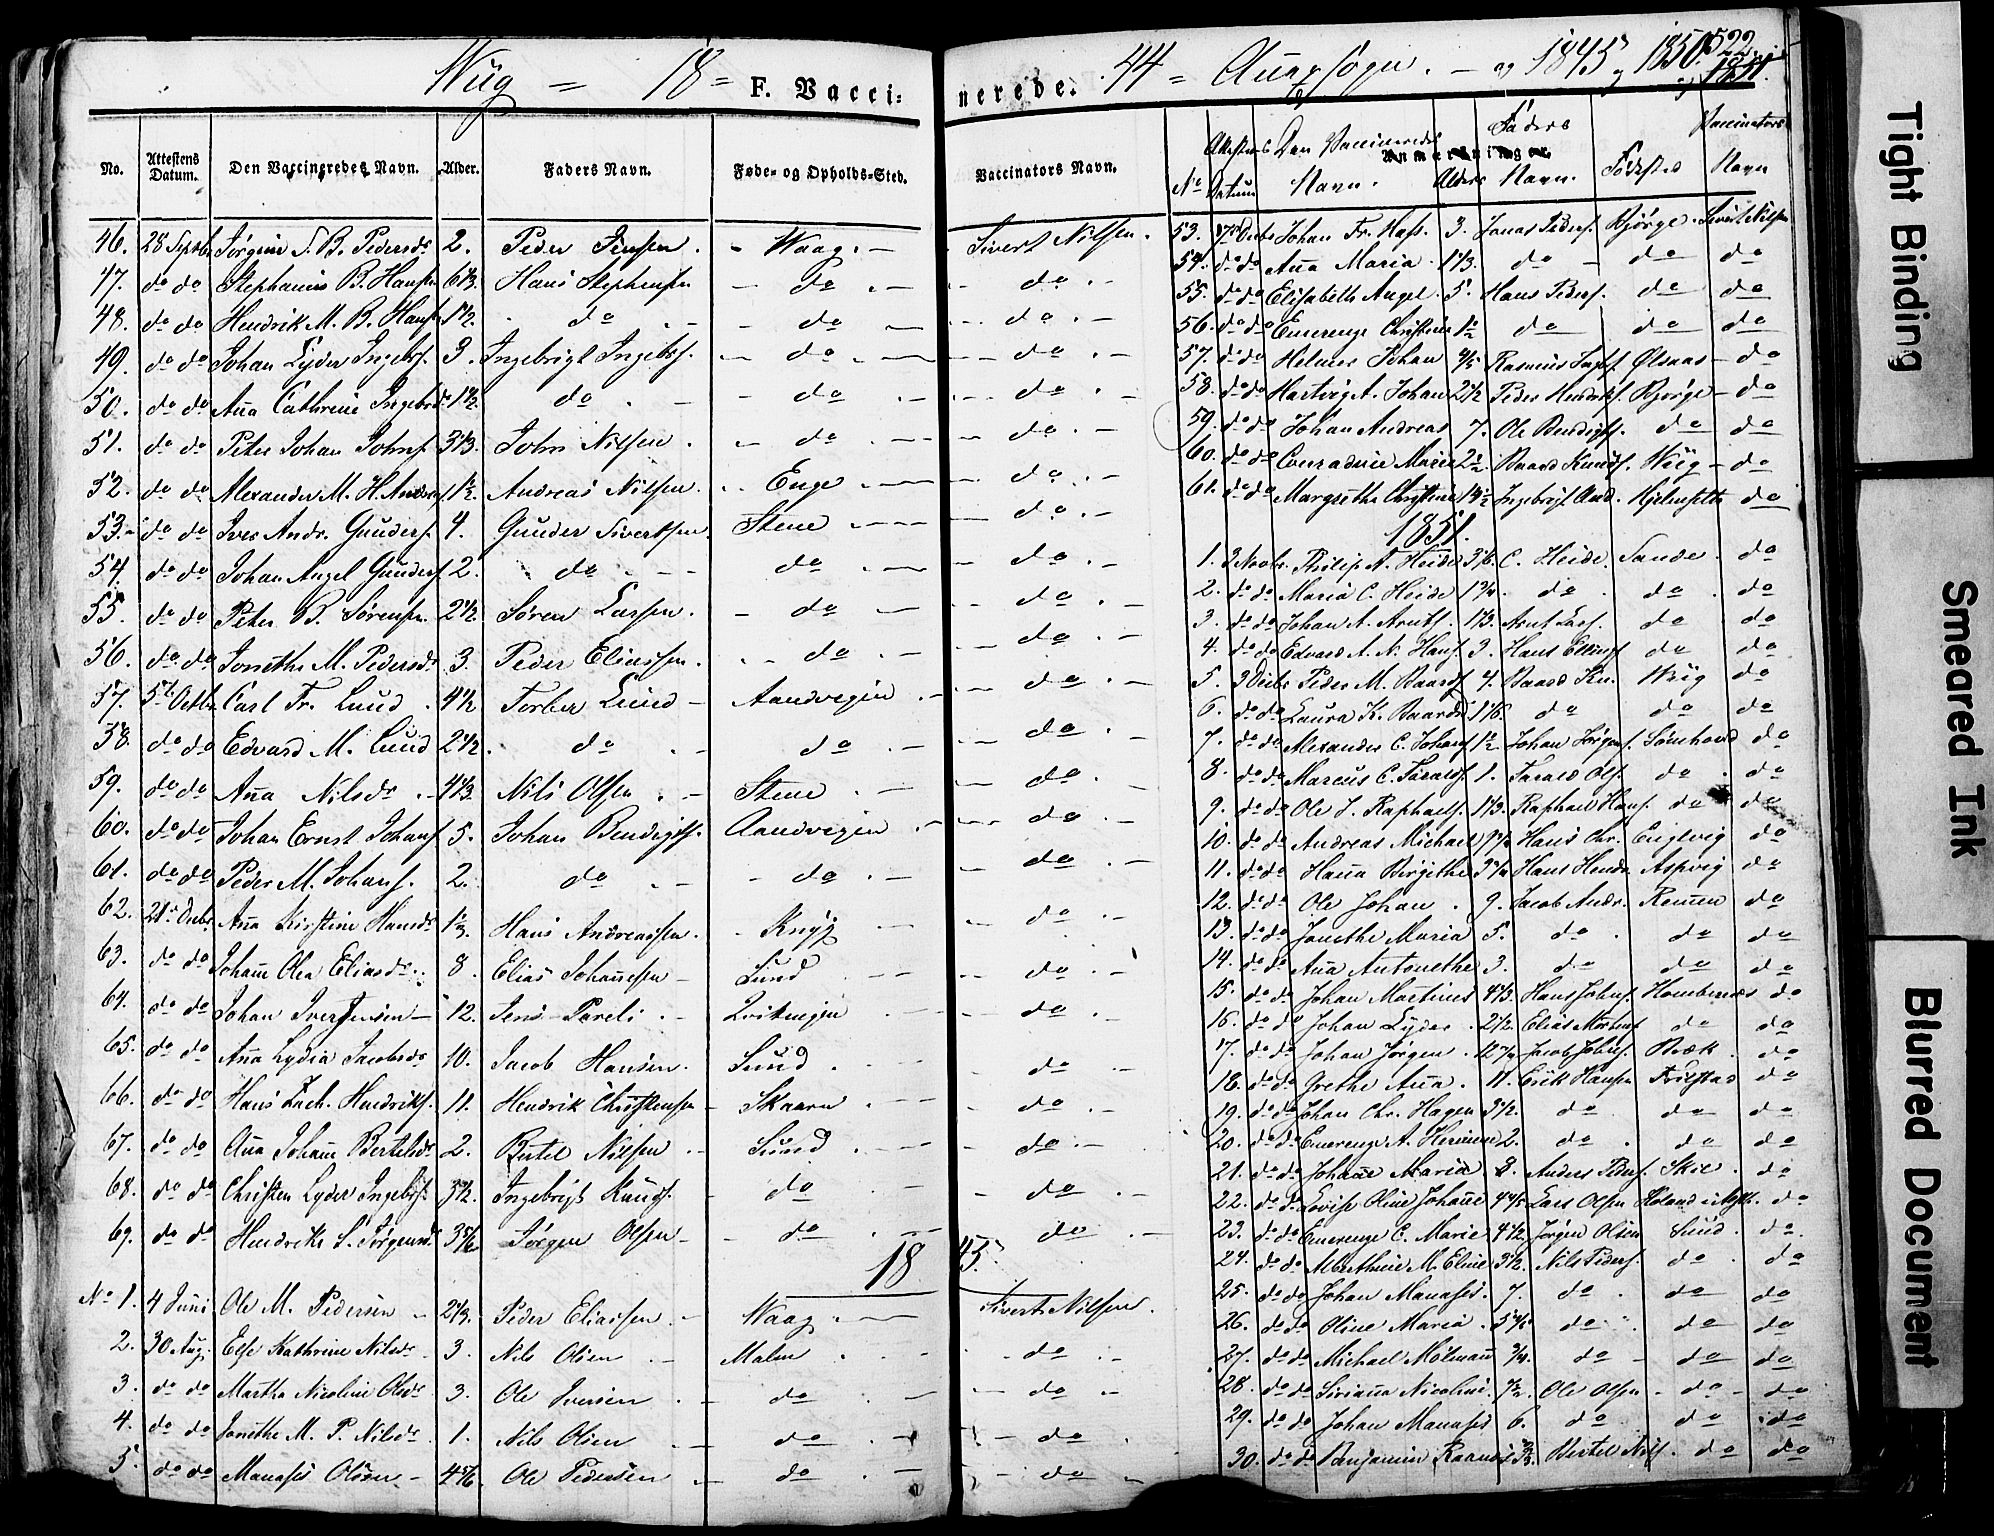 Wiig = 18 = F. Vacci:
No. Attestens Datum. Den Vaccineredes Navn. Alder. Faders Navn. Føde- og Opholds-Sted.
46. 28 Septbr Jørgine S. B. Pedersdr 2. Peder Jensen. - Waag. - Sivert Nilsen.
47. do do Stephanus B. Hansen 6 1/3. Hans Stephensen - do. - do. -
48. do do Hendrik M. B. Hans. 1 1/2. do - do - do. -
49. do do Johan Lyder Ingebr. 3. Ingebrigt Ingebr. - do. - do. -
50. do do Ana Cathrine Ingebrdr 1 1/2. do. - do - do. -
51. do do Peter Johan Johns. 3 1/3. John Nilsen. - do. - do. -
52. do do Alexander M. H. Anders. 1 1/2. Andreas Nilsen. - Enge - do. -
53. do do Iver Andr. Gunders. 4. Gunder Sivertsen. Stene - do. -
54. do do Johan Angel Gunders. 2. do - do - do. -
55. do do Peter B. Sørensen. 2 1/2 Søren Larsen. - do - do. -
56. do do Jonethe M. Pedersdr 3. Peder Eliassen. - do. - do. -
57. 5t Octbr Carl Fr. Lund. 4 1/2 Torber Lund - Aandvegen. - do. -
58. do do Edvard M. Lund 2 1/2. do. - do. - do. -
59. do do Ana Nilsdr. - 4 1/3. Nils Olsen. - Stene. - do.
60. do do Johan Ernst Johans. 5. Johan Bendigts. Aandvegen. - do. -
61. do do Peder M. Johans. 2. do. - do. - do. -
62. 21 Decbr Ana Kirstine Hansdr Hans Andreassen. - Knyg - do. -
63. do do Johane Olea Eliasdr. 8. Elias Johanesen - Lund - do. -
64. do do Johan Iver Jensen - 12. Jens Pareli. - Qvitnegen - do. -
65. do do Ana Lydia Jacobsdr 10. Jacob Hansen. Sund. do. -
66. do do Hans Zach. Hendriks. 11. Hendrik Christensen - Skaaren - do. -
67. do do Ana Johane Bertelsdr 2. Bertel Nilsen - Sund. - do. -
68. do do Christen Lyder Ingebr. 3 1/2. Ingebrigt Knuds. - do. - do. -
69. do do Hendrike S. Jørgensdr 3 5/6 Jørgen Olsen - - do. - do. -
18 45.
No 1. 4 Juni Ole M. Pedersen - 2 1/3. Peder Eliassen. - Waag. - Sivert Nilsen.
2. 30 Aug. Else Kathrine Nilsdr 3. Nils Olsen. - Malm. - do. -
3. do do Martha Nicoline Olsdr 3. Ole Iversen. - do - do -
4. do do Jonethe M. P. Nilsdr. 1. Nils Olsen - do. - do.
5. do do Manases Olsen - 4 5/6 Ole Pedersen - do. - do
nerede. 44 = Auregsogn. - og 1845, 1850. og 1851.
522
Vaccinators Navn. Anmerkninger.
No Attestens Datum Den Vaccineredes Navn. Alders Faders Navn. Fødested Vaccinators Navn
53. 27 Decbr Johan Fr. Hafs. 3. Jonas Peders. Bjørge. Sivert Nilsen
54. do do Ana Maria. 1 1/3. do - do do
55. do do Elisabeth Angel. 5. Hans Peders. do do
56. do do Emerenze Christine 1/2 do do do
57. do do Helmer Johan 4/5 Rasmus Ingbr. Ølsaas - do
58. do do Hartvig A. Johan 2 1/2 Peder Hendriks. Bjørge - do
59. do do Johan Andreas 7. Ole Bendigts. do do
60. do do Conradine Marie 2 1/2 Baard Knuds. Wiig - do
61. do do Margrethe Christine 1 1/2 Ingebrigt And. Hjelmseth do
1851.
1. 3 Novbr. Philip A. Heide 3 1/6. C. Heide. Sande. do
2. do do Maria C. Heide 1 3/4. do. do. do
3. do do Johan A. Arnts. 1 1/3. Arnt Lars. do do
4. do do Edvard A. N. Hans. 3. Hans Ellings. do do
5. 3 Decbr Peder M. Baards. 4. Baard Kn. Wiig do
6. do do Laura K. Baardsd. 1 1/6. do do do
7. do do Alexander C. Johans. 1/2. Johan Jørgens. Sørnhoved do
8. do do Marcus C. Taralds. 1. Tarald Ols. do. do
9. do do Ole J. Raphaels. 1 1/3. Raphael Hans. do do
10. do do Andreas Michael Hans Chr. Englvig do
11. do do Hana Birgithe 3 3/4 Hans Hendr. Aspvig do
12. do do Ole Johan. 9. Jacob Andr. Remen do
13. do do Jonethe Maria 5. do. do do
14. do do Ana Antonethe 3. do do do
15. do do Johan Martinus 4 1/3. Hans Johns. Hombernæs do
16. do do Johan Lyder. 2 1/2. Elias Mortens. do do
17. do do Johan Jørgen. 12 3/4 Jacob Johns. Bræk. do
18. do do Grethe Ana. 11. Erik Hansen Frilstad do
19. do do Johan Chr. Hagen 3 1/2. do do do
20. do do Emerenze A. Hermine 2. do. do do
21. do do Johane Maria 8. Anders Peders. Skie. do
22. do do Lovise Oline Johane 4 4/5 Lars Olsen do
23. do do Emerenze C. Marie 4 1/2. Jørgen Olsen Sund. do.
24. do do Albertine M. Eline 3 1/2. Nils Peders. do do
25. do do Johan Manases. 7. do. do do
26. do do Oline Maria. 5 do do do
27. do do Michael Mølmann 3/4. do - do do
28. do do Siviana Nicoline. Ole Olsen - do - do
29. do do Johan Manases 6. do do do
30. do do Benjamin Bertel Nils. do do
Tight Binding
Smeared Ink
Blurred Document